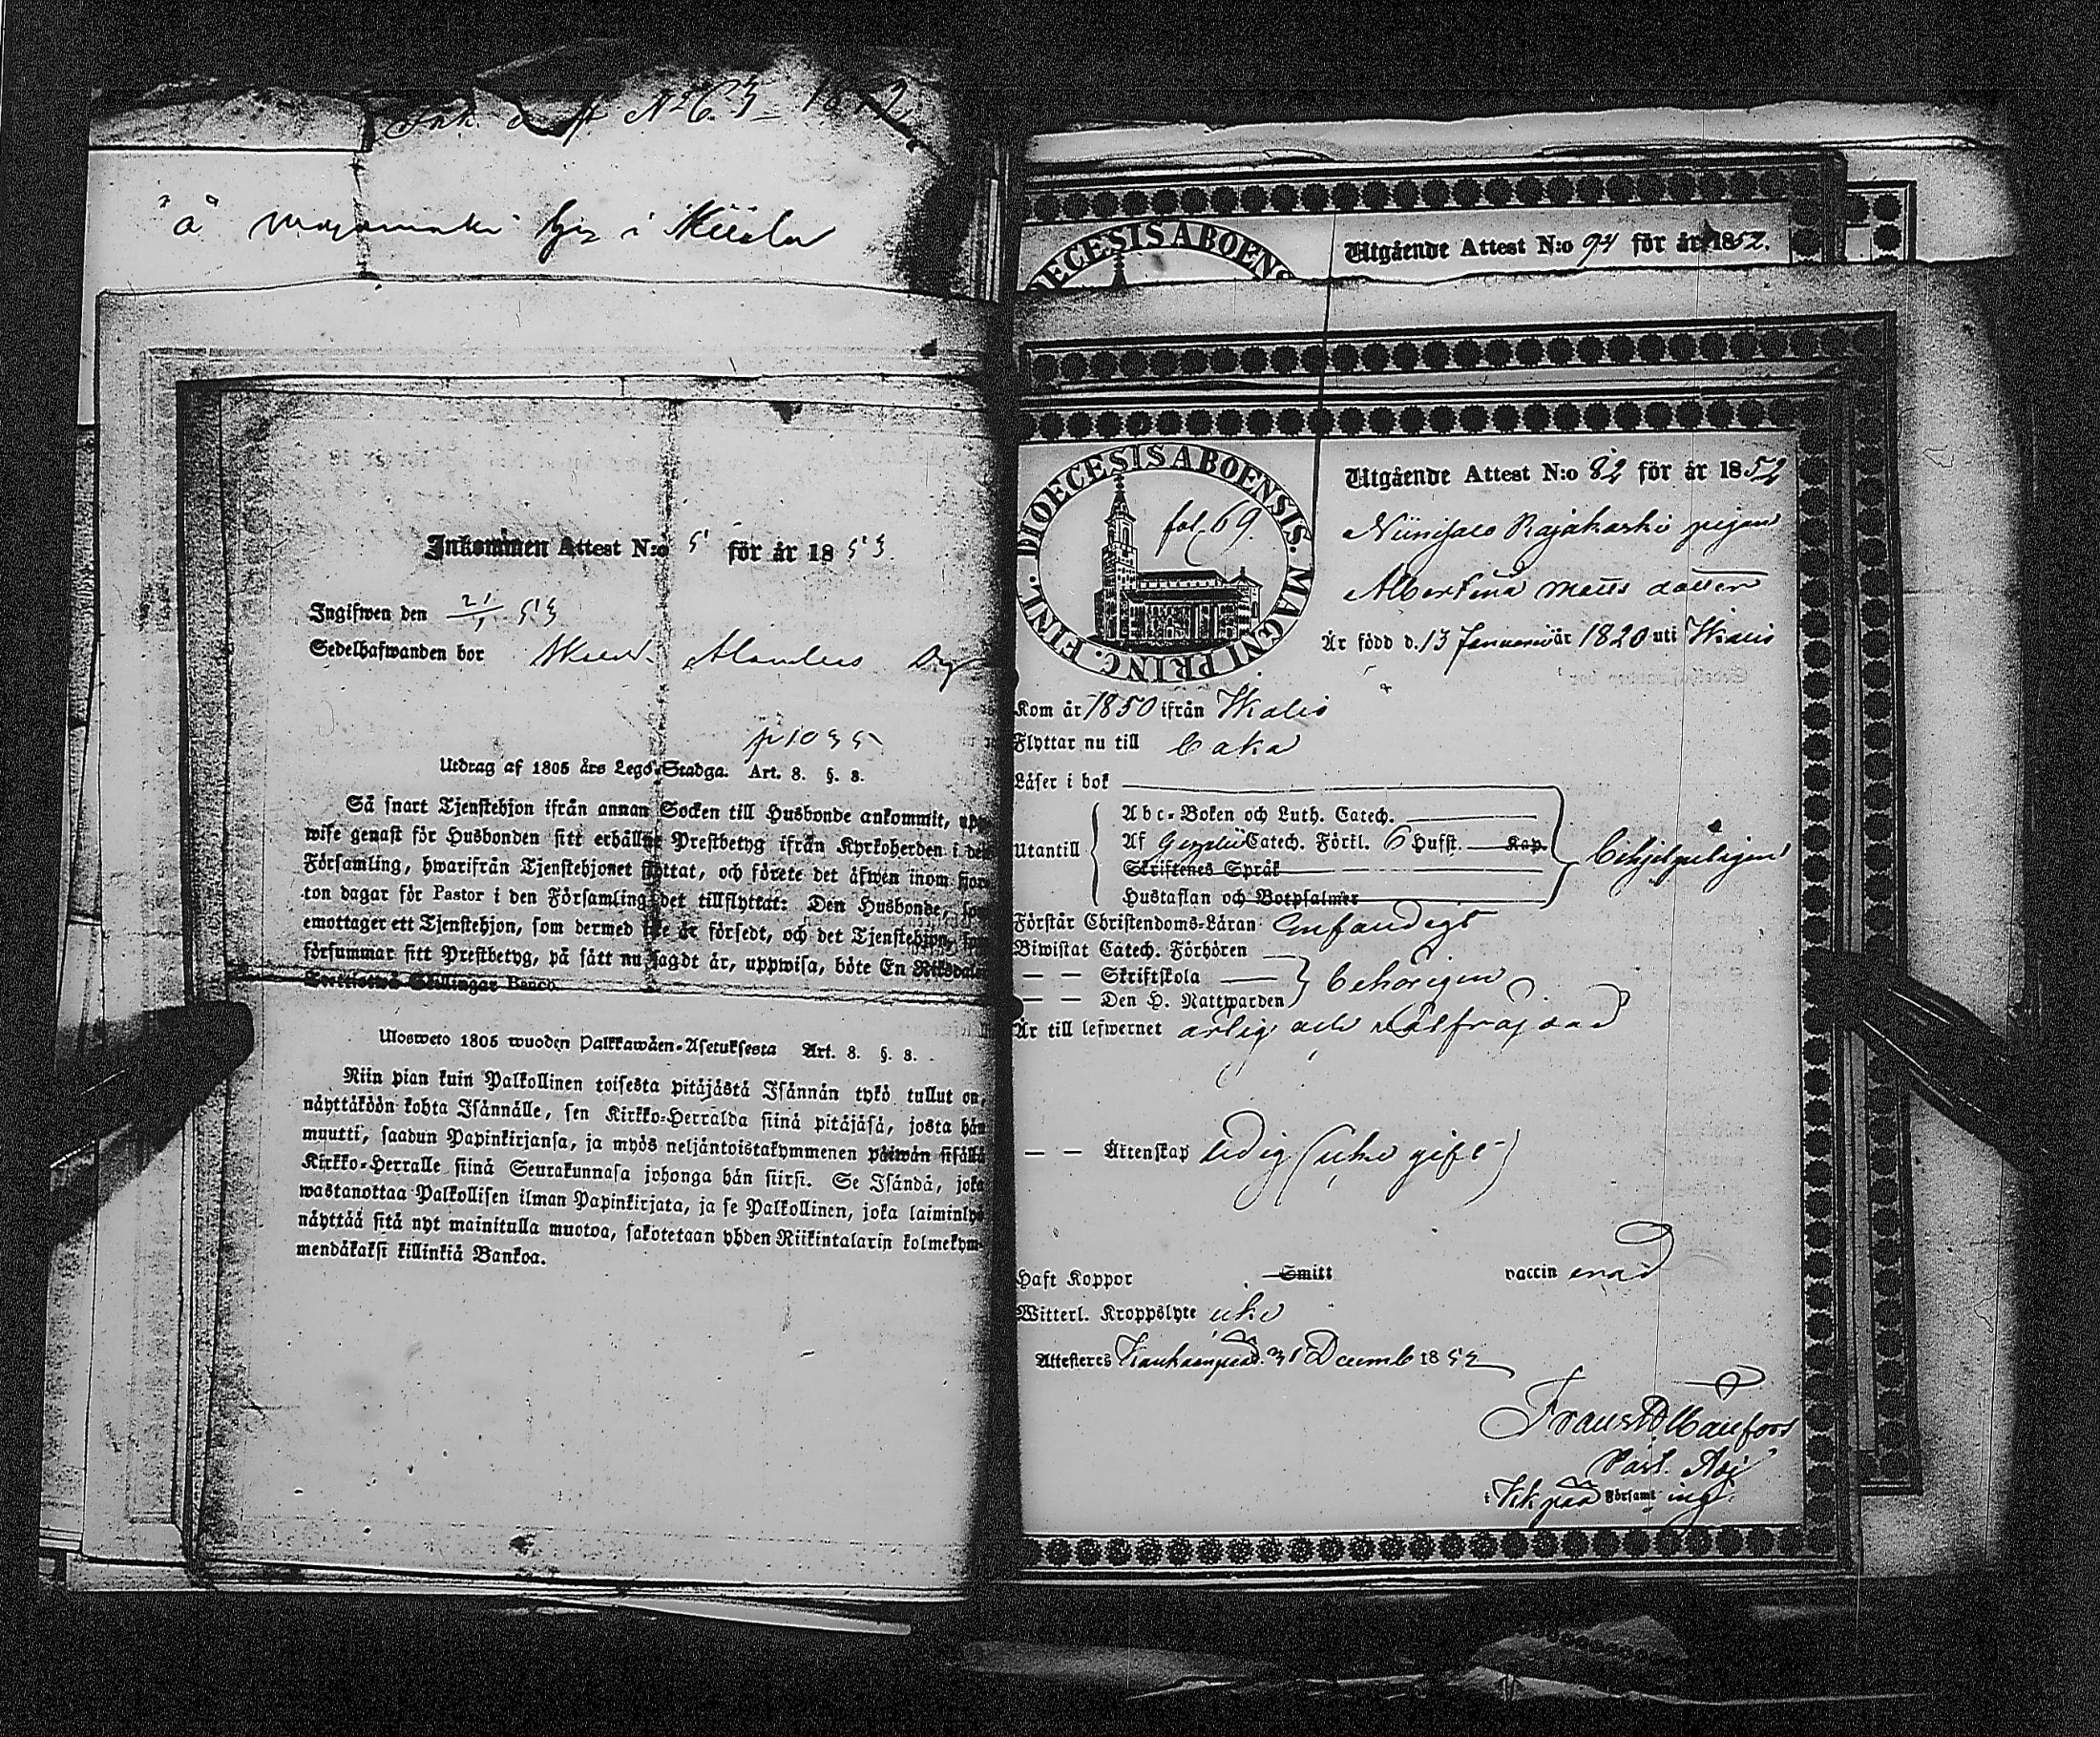 Ink. att N:o 63 1852
"å" i
Inkommen Attest N:o 5 för år 1853.
Ingifwen den 21/1 53
Sedelhafwanden bor
p 1035
Utdrag af 1805 års Lego-Stadga. Art. 8. §. 8.
Så snart Tjenstehjon ifrån annan Socken till Husbonde ankommit, upp
wise genast för Husbonden sitt erhållne Prestbetyg ifrån Kyrkoherden i den
Församling, hwarifrån Tjenstehjonet flyttat, och förete det äfwen inom fjor
ton dagar för Pastor i den Församling det tillflyttat: Den Husbonde, som
emottager ett Tjenstehjon, som dermed icke är försedt, och det Tjenstehjon, som
försummar sitt Prestbetyg, på sätt nu sagdt är, uppwisa, böte En Riksdaler
Trettiotwå Skillingar Banco.
Ulosweto 1805 wuoden Palkkawäen-Asetuksesta Art. 8. §. 8.
Niin pian kuin Palkollinen toisesta pitäjästä Isännän tykö tullut on,
näyttäköön kohta Isännälle, sen Kirkko-Herralda siinä pitäjäsä, josta hän
muutti, saadun Papinkirjansa, ja myös neljäntoistakymmenen päiwän sisällä
Kirkko-Herralle siinä Seurakunnasa johonga hän siirsi. Se Isändä, joka
wastanottaa Palkollisen ilman Papinkirjata, ja se Palkollinen, joka laiminlyö
näyttää sitä nyt mainitulla muotoa, sakotetaan yhden Riikintalarin kolmekym-
mendäkaksi killinkiä Bankoa.
DIOECESIS ABOENS
Utgående Attest N:o 94 för år 1852.
DIOECESIS ABOENSIS. MAGNI PRINC. FINL.
fol. 69.
Utgående Attest N:o 82 för år 1852
Niinisalo Rajakoski pigan
Albertina Matts dotter
Är född d. 13 Januarii år 1820 uti Ikalis
Kom år 1850 ifrån Ikalis
Flyttar nu till
Läser i bok
Utantill
Abc-Boken och Luth. Catech.
Af Gezelii Catech. Förkl. 6 Hufst. Kap.
Skriftenes Språk
Hustaflan och Botpsalmer
behjelpeligen
Förstår Christendoms-Läran enfaldigt
Biwistat Catech. Förhören
— — Skriftskola
— — Den H. Nattwarden
behörigen
Är till lefwernet ärlig och wälfräjdad
— — Äktenskap ledig (icke gift)
Haft Koppor Smitt vaccinerad
Witterl. Kroppslyte icke
Attesteras Kankaanpää d. 31 Decemb 1852
Past. Adj
i Kkpää Församling.